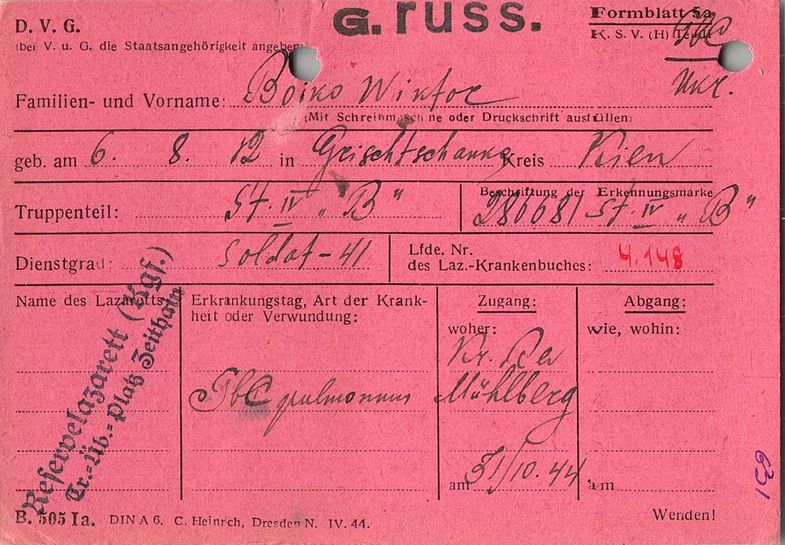 D. V. G.
G. russ.
Formblatt 5a
(bei V. u. G. die Staatsangehörigkeit angeben)
K. S. V. (H) Teil
Tbc
Ukr.
Familien- und Vorname: Boiko Wiktor
(Mit Schreibmaschine oder Druckschrift ausfüllen)
geb. am 6. 8. 12 in Kreis Kiew
Truppenteil: St. IV „B"
Beschriftung der Erkennungsmarke
286681 St. IV „B"
Dienstgrad: Soldat-41
Lfde. Nr.
des Laz.-Krankenbuches: 4.148
Name des Lazaretts
Erkrankungstag, Art der Krank-
heit oder Verwundung:
Zugang:
woher:
Abgang:
wie, wohin:
Reservelazarett (Kgf.)
Tr.=Üb.=Platz Zeithain
Tbc pulmonum
Kr. Rev
Mühlberg
am 31/10.44
am
631
B. 505 Ia. DIN A 6. C. Heinrich, Dresden N. IV. 44.
Wenden!